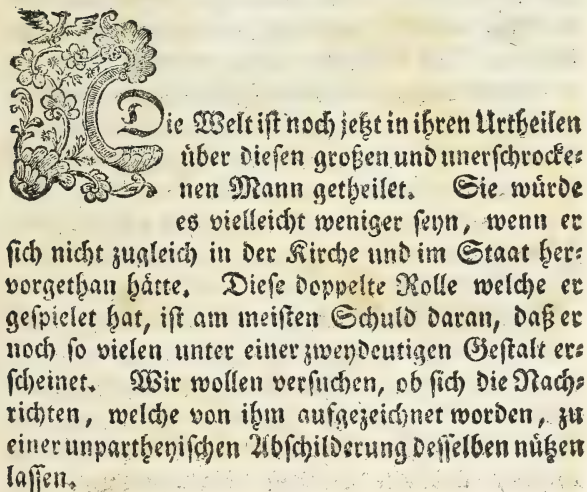 Die Welt ist noch jetzt in ihren Urtheilen
über diesen großen und unerschrocke⸗
nen Mann getheilet. Sie würde
es vielleicht weniger seyn, wenn er
sich nicht zugleich in der Kirche und im Staat her⸗
vorgethan hätte. Diese doppelte Rolle welche er
gespielet hat, ist am meisten Schuld daran, daß er
noch so vielen unter einer zweydeutigen Gestalt er⸗
scheinet. Wir wollen versuchen, ob sich die Nach⸗
richten, welche von ihm aufgezeichnet worden, zu
einer unpartheyischen Abschilderung desselben nützen
lassen.